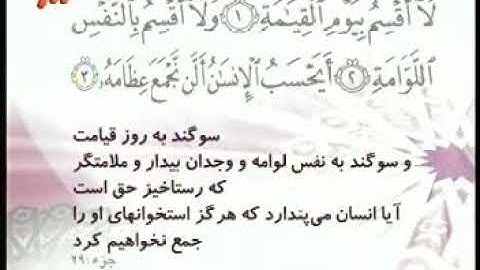 لَا أُقْسِمُ بِيَوْمِ الْقِيَامَةِ ﴿١﴾ وَلَا أُقْسِمُ بِالنَّفْسِ
اللَّوَّامَةِ ﴿٢﴾ أَيَحْسَبُ الْإِنسَانُ أَلَّن نَّجْمَعَ عِظَامَهُ ﴿٣﴾
سوگند به روز قیامت
و سوگند به نفس لوامه و وجدان بیدار و ملامتگر
که رستاخیز حق است
آیا انسان می‌پندارد که هرگز استخوانهای او را
جمع نخواهیم کرد
جزء:۲۹